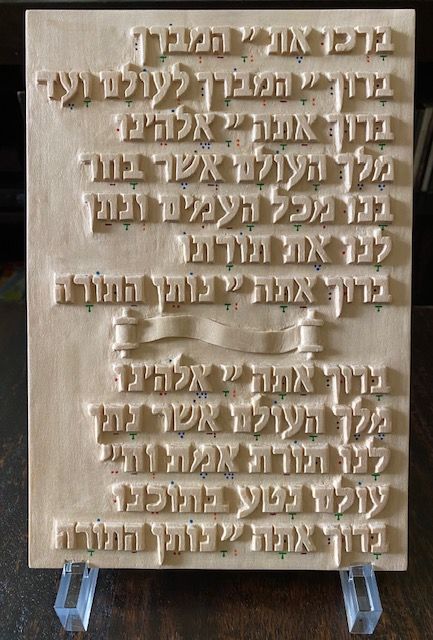 ברכו את יי המברך
ברוך יי המברך לעולם ועד
ברוך אתה יי אלהינו
מלך העולם אשר בחר
בנו מכל העמים ונתן
לנו את תורתו
ברוך אתה יי נותן התורה
ברוך אתה יי אלהינו
מלך העולם אשר נתן
לנו תורת אמת וחיי
עולם נטע בתוכנו
ברוך אתה יי נותן התורה